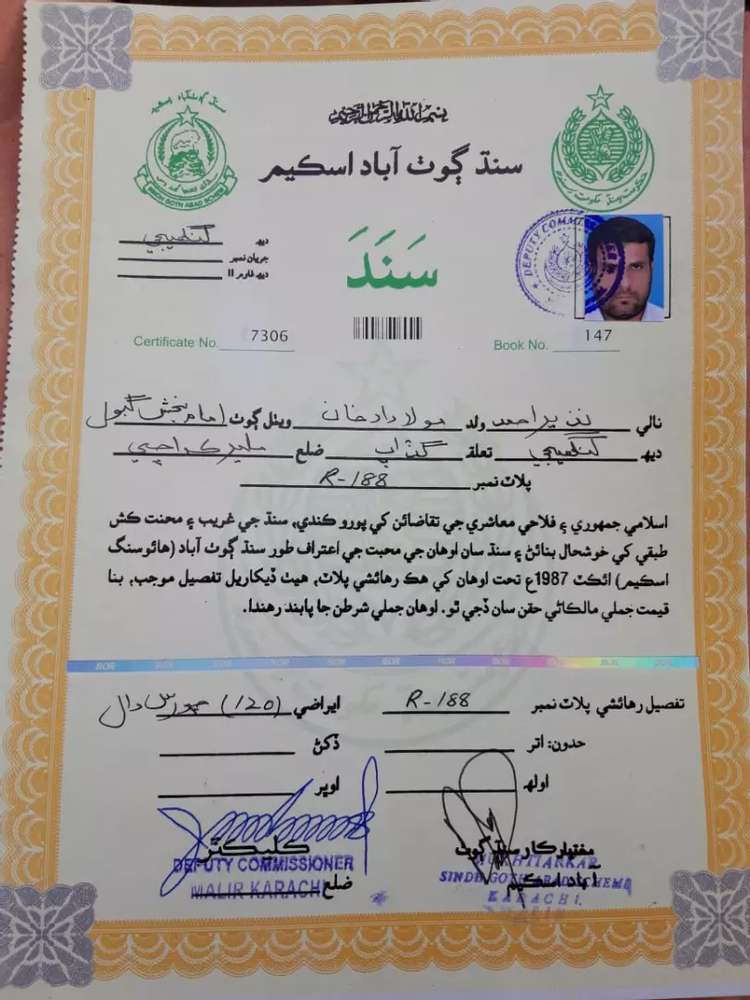 بسم الله الرحمن الرحيم
سنڌ ڳوٺ آباد اسڪيم
SINDH GOTH ABAD SCHEME
DEPUTY COMMI
ديھ
جريان نمبر
ديھ فارم II
سَنَدَ
Certificate No. 7306
Book No. 147
نالي نذير احمد ولد مولاداد خان ويٺل ڳوٺ امام بخش گبول
ديھ تعلقہ گڏاپ ضلع ملير ڪراچي
پلاٽ نمبر R-188
اسلامي جمهوري ۽ فلاحي معاشري جي تقاضائن کي پورو ڪندي، سنڌ جي غريب ۽ محنت ڪش
طبقي کي خوشحال بنائڻ ۽ سنڌ سان اوهان جي محبت جي اعتراف طور سنڌ ڳوٺ آباد (هائوسنگ
اسڪيم) ائڪٽ 1987ع تحت اوهان کي هڪ رهائشي پلاٽ، هيٺ ڏيکاريل تفصيل موجب، بنا
قيمت جملي مالڪاڻي حقن سان ڏجي ٿو. اوهان جملي شرطن جا پابند رهندا.
BOR BOR BOR BOR BOR BOR BOR BOR
تفصيل رهائشي پلاٽ نمبر R-188 ايراضي (120)
حدون: اتر ڏکڻ
اولھ اوير
مختيارڪار سنڌ ڳوٺ ڪليڪٽر
آباد اسڪيم ضلع
MUKHTIARKAR
SINDH GOTH ABAD SCHEME
KARACHI.
DEPUTY COMMISSIONER
MALIR KARACHI